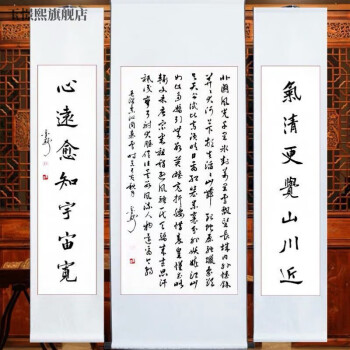 旗舰店
氣清更覺山川近
北國風光千里冰封萬里雪飄望長城內外惟餘
莽莽大河上下頓失滔滔山舞銀蛇原馳蠟象欲
與天公試比高須晴日看紅裝素裹分外妖嬈江山
如此多嬌引無數英雄競折腰惜秦皇漢武略
輸文采唐宗宋祖稍遜風騷一代天驕成吉思汗
祇識彎弓射大雕俱往矣數風流人物還看今朝
毛澤東沁園春雪
心遠愈知宇宙寬